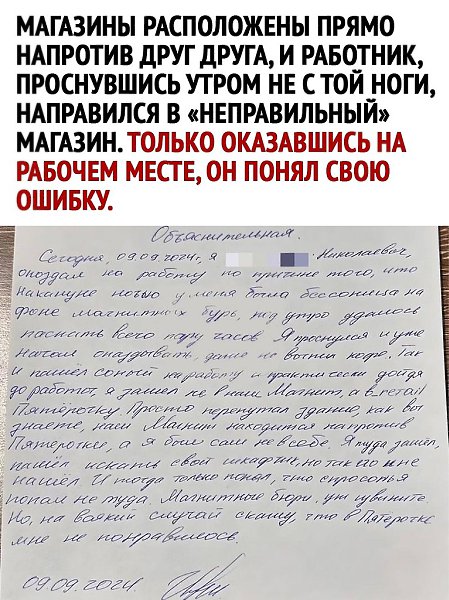 МАГАЗИНЫ РАСПОЛОЖЕНЫ ПРЯМО
НАПРОТИВ ДРУГ ДРУГА, И РАБОТНИК,
ПРОСНУВШИСЬ УТРОМ НЕ С ТОЙ НОГИ,
НАПРАВИЛСЯ В «НЕПРАВИЛЬНЫЙ»
МАГАЗИН. ТОЛЬКО ОКАЗАВШИСЬ НА
РАБОЧЕМ МЕСТЕ, ОН ПОНЯЛ СВОЮ
ОШИБКУ.
Объяснительная.
Сегодня, 09.09.2024, я Николаевич,
опоздал на работу по причине того, что
накануне ночью у меня была бессонница на
фоне магнитных бурь, под утро удалось
поспать всего пару часов Я проснулся и уже
начал опаздывать, даже не выпил кофе. Так
и пошёл сонный на работу и практически дойдя
до работы, я зашел не в наш Магнит, а в
Пятёрочку. Просто перепутал здание, как вы
знаете, наш Магнит находится напротив
Пятёрочки, а я был сам не в себе. Я туда зашёл,
пошёл искать свой шкафчик, но так его и не
нашёл И тогда только понял, что спросонья
попал не туда. Магнитные бури, уж извините.
Но, на всякий случай скажу, что в Пятёрочке
мне не понравилось.
09.09.2024.